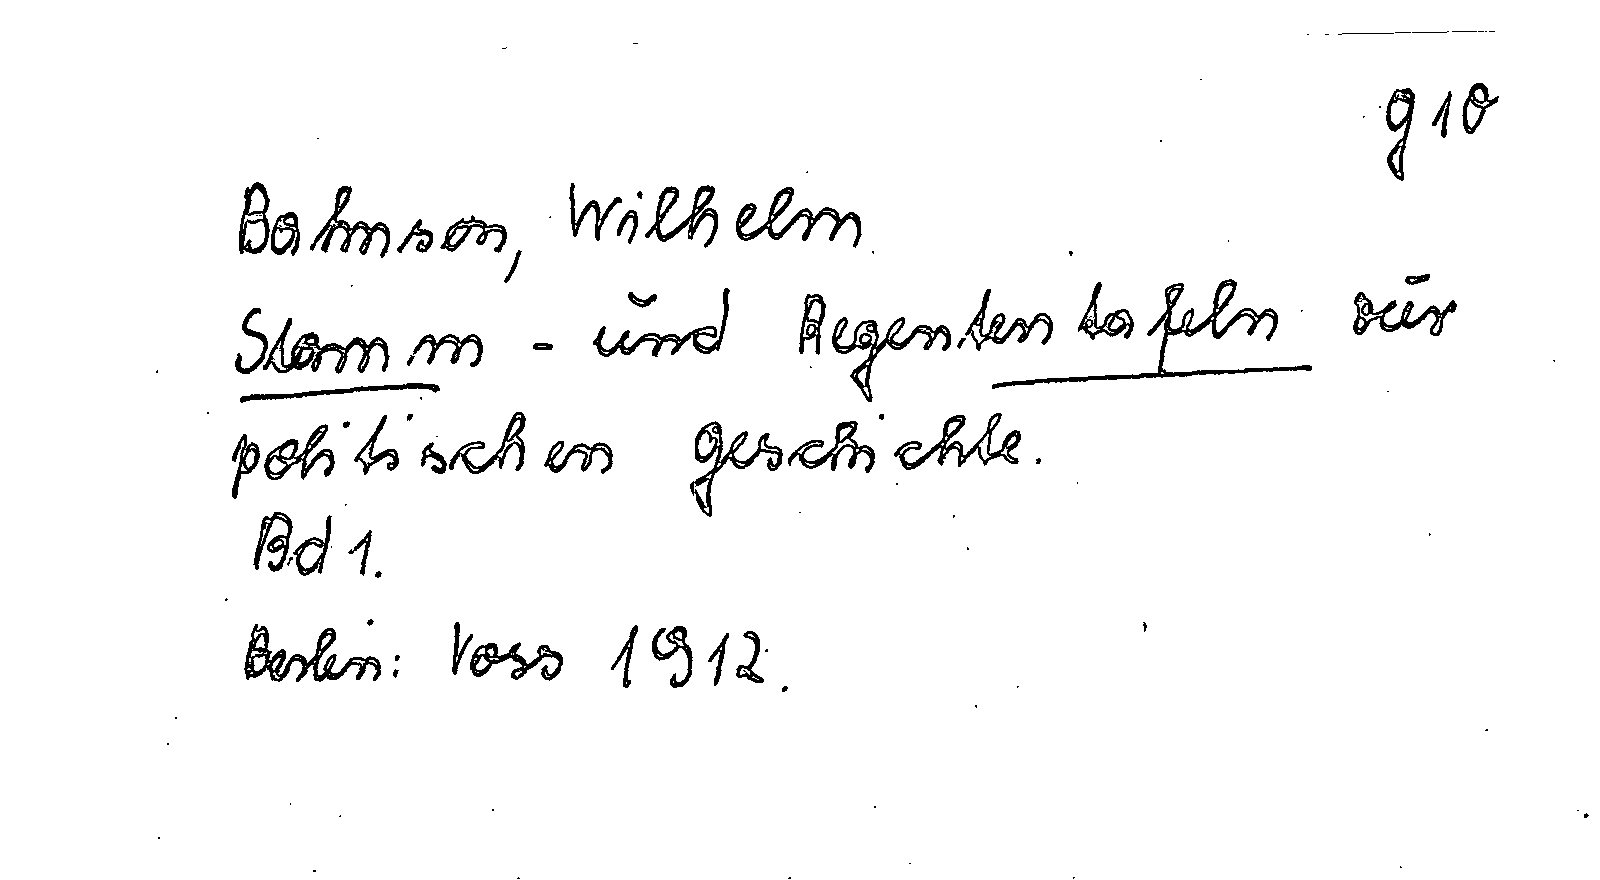 g 10
Bahnson, Wilhelm
Stamm - und Regententafeln zur
politischen Geschichte.
Bd 1.
Berlin: Voss 1912.